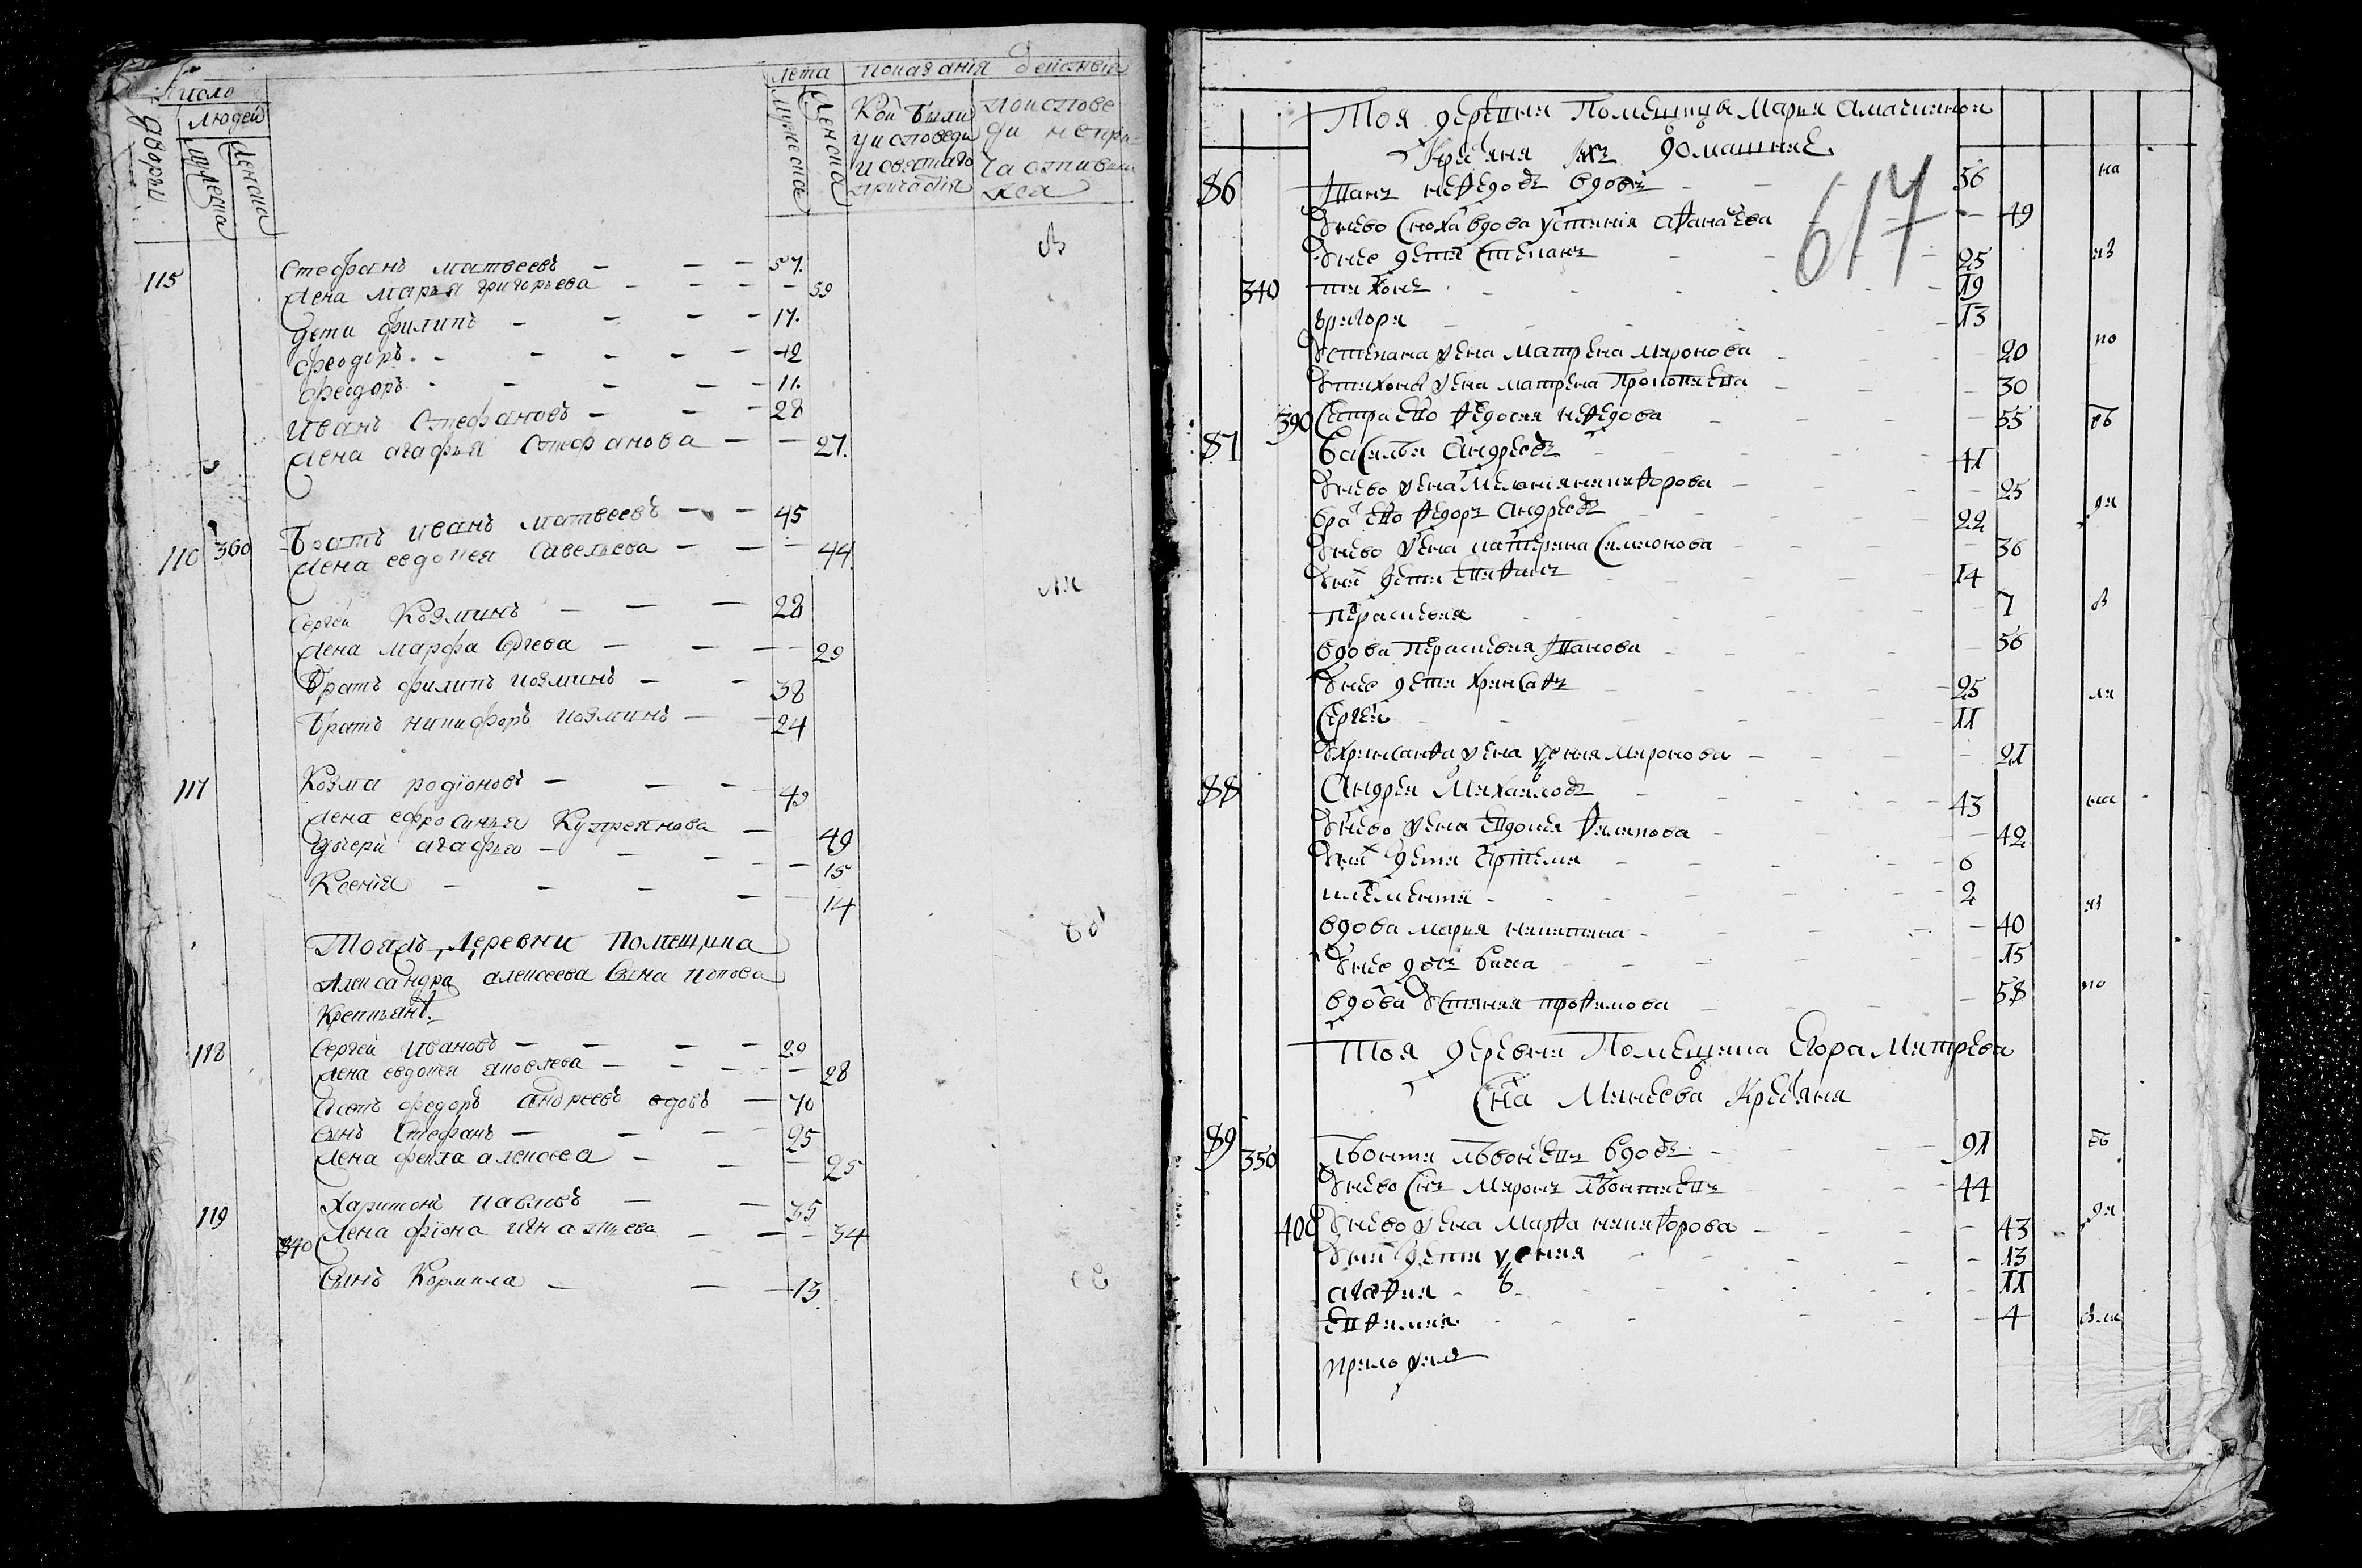 Число
Людей
Дворы
Мужеска
Женска
Лета
Мужеска
Женска
Показанія действія
Кои были
у исповеди
и святаго
причастія
По испове
ди не при-
частивши
хся
115 Стефанъ Матвеевъ 57.
Жена Марья Григорьева 59
дети Филипъ 17.
Феодоръ 12
Феодоръ 11.
Иванъ Стефановъ 28
Жена Агафья Стефанова 27.
110 360 Братъ Иванъ Матвеевъ 45
Жена Евдокея Савельева 44
Сергей Козминъ 28
Жена Марфа 29
Братъ Филипъ Козминъ 38
Братъ Никифоръ Козминъ 24
117 Козма Родіоновъ 49
Жена Ефросинья Купреянова 49
дочери Агафья 15
Ксенія 14
Тояжъ Деревни Помещика
Александра Алексеева Сына Попова
Крестьяне
118 Сергей Ивановъ 29
Жена Евдокея Яковлева 28
Федоръ Андреевъ вдовъ 70
Сынъ Стефанъ 25
Жена Фекла Алексеева 25
119 Харитонъ Павловъ 35
340 Жена Фіона Игнатьева 34
Сынъ Кормила 13.
617
Тоя деревни Помещицы Марьи
домашния
86 Иванъ Нефедовъ вдовъ 56
У нево сноха вдова Устинія Афанасева 49
У нее дети Степанъ 25
340 Тихонъ 19
Григори 13
У Степана жена Матрена Миронова 20
У Тихона жена Матрена Прокопиева 30
390 Сестра ево Федосия Нефедова 55
87 Василеи Андреевъ 41
У нево жена Мелания Никифорова 25
Бра ево Федоръ Андреевъ 22
У нево жена Катерина Симионова 36
У них дети Евфимъ 14
Пераскевия 7
вдова Пераскевия Иванова 56
У нее дети Хрисанфъ 25
Сергеи 11
У Хрисанфа жена Миронова 21
88 Андреи Михаиловъ 43
У нево жена Евдокея Филипова 42
У них дети Артемеи 6
Климентей 2
вдова Марья Никитина 40
У нее дочь Васса 15
вдова Устиния Трофимова 58
Тоя деревни Помещика Егора Митрева
Сна Минеева Кресяня
89 350 Леонтеи вдовъ 91
У нево снъ Миронъ Леонтиевъ 44
400 У нево жена Марфа Никифорова 43
У них дети 13
Агафия 11
Евфимия 4